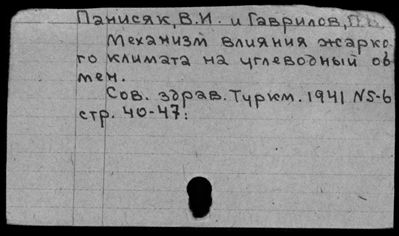 Панисяк, В.И. и Гаврилов,
Механизм влияния жарко
го климата на углеводный об
мен.
Сов. здрав. Туркм. 1941 N5-6
стр. 40-47: